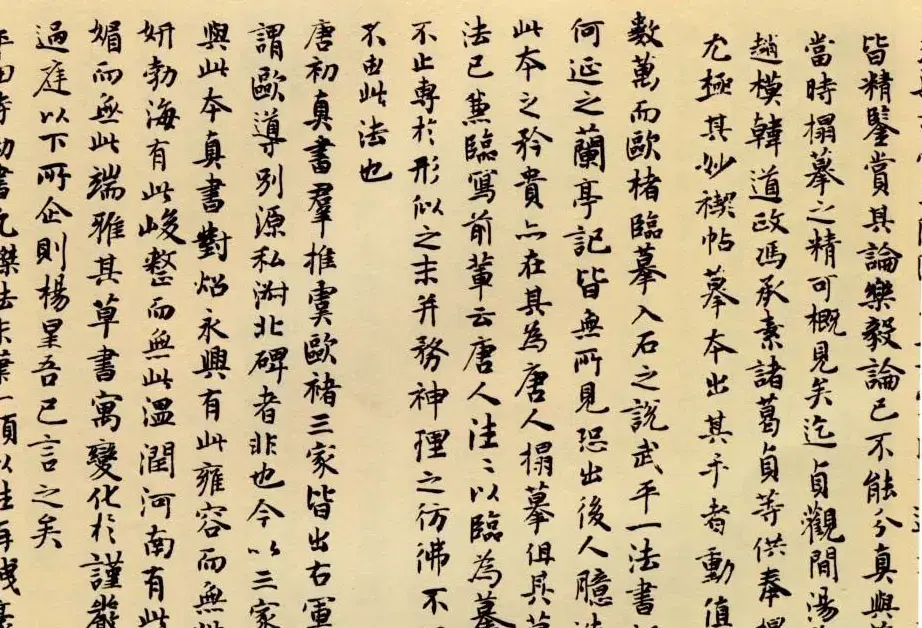 皆精鑒賞其論樂毅論已不能分真與
當時搨摹之精可概見矣迄貞觀間湯
趙模韓道政馮承素諸葛貞等供奉搨
尤極其妙禊帖摹本出其手者動值
數萬而歐褚臨摹入石之說武平一法書
何延之蘭亭記皆無所見恐出後人臆
此本之矜貴亦在其為唐人搨摹但具
法已兼臨寫前輩云唐人往〻以臨為摹
不止專於形似之末并務神理之彷彿不
不由此法也
唐初真書羣推虞歐褚三家皆出右軍
謂歐導別源私淑北碑者非也今以三家
與此本真書對炤永興有此雍容而無
妍勃海有此峻整而無此溫潤河南有此
媚而無此端雅其草書寓變化於謹嚴
過庭以下所企則楊星吾已言之矣